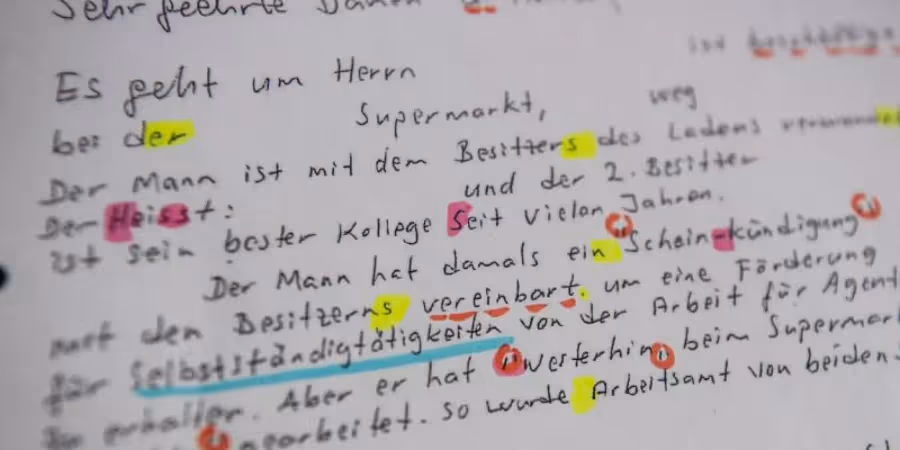 Sehr geehrte Damen
ist beschäftigt
Es geht um Herrn
bei der Supermarkt, weg
Der Mann ist mit dem Besitzers des Ladens verwandt
Der Heisst: und der 2. Besitzer
ist sein bester Kollege Seit vielen Jahren.
Der Mann hat damals ein "Schein-kündigung"
mit den Besitzerns vereinbart. um eine Förderung
für Selbstständigtätigkeiten von der Arbeit für Agent
zu erhalten. Aber er hat "weiterhin" beim Supermar
gearbeitet. So wurde Arbeitsamt von beiden